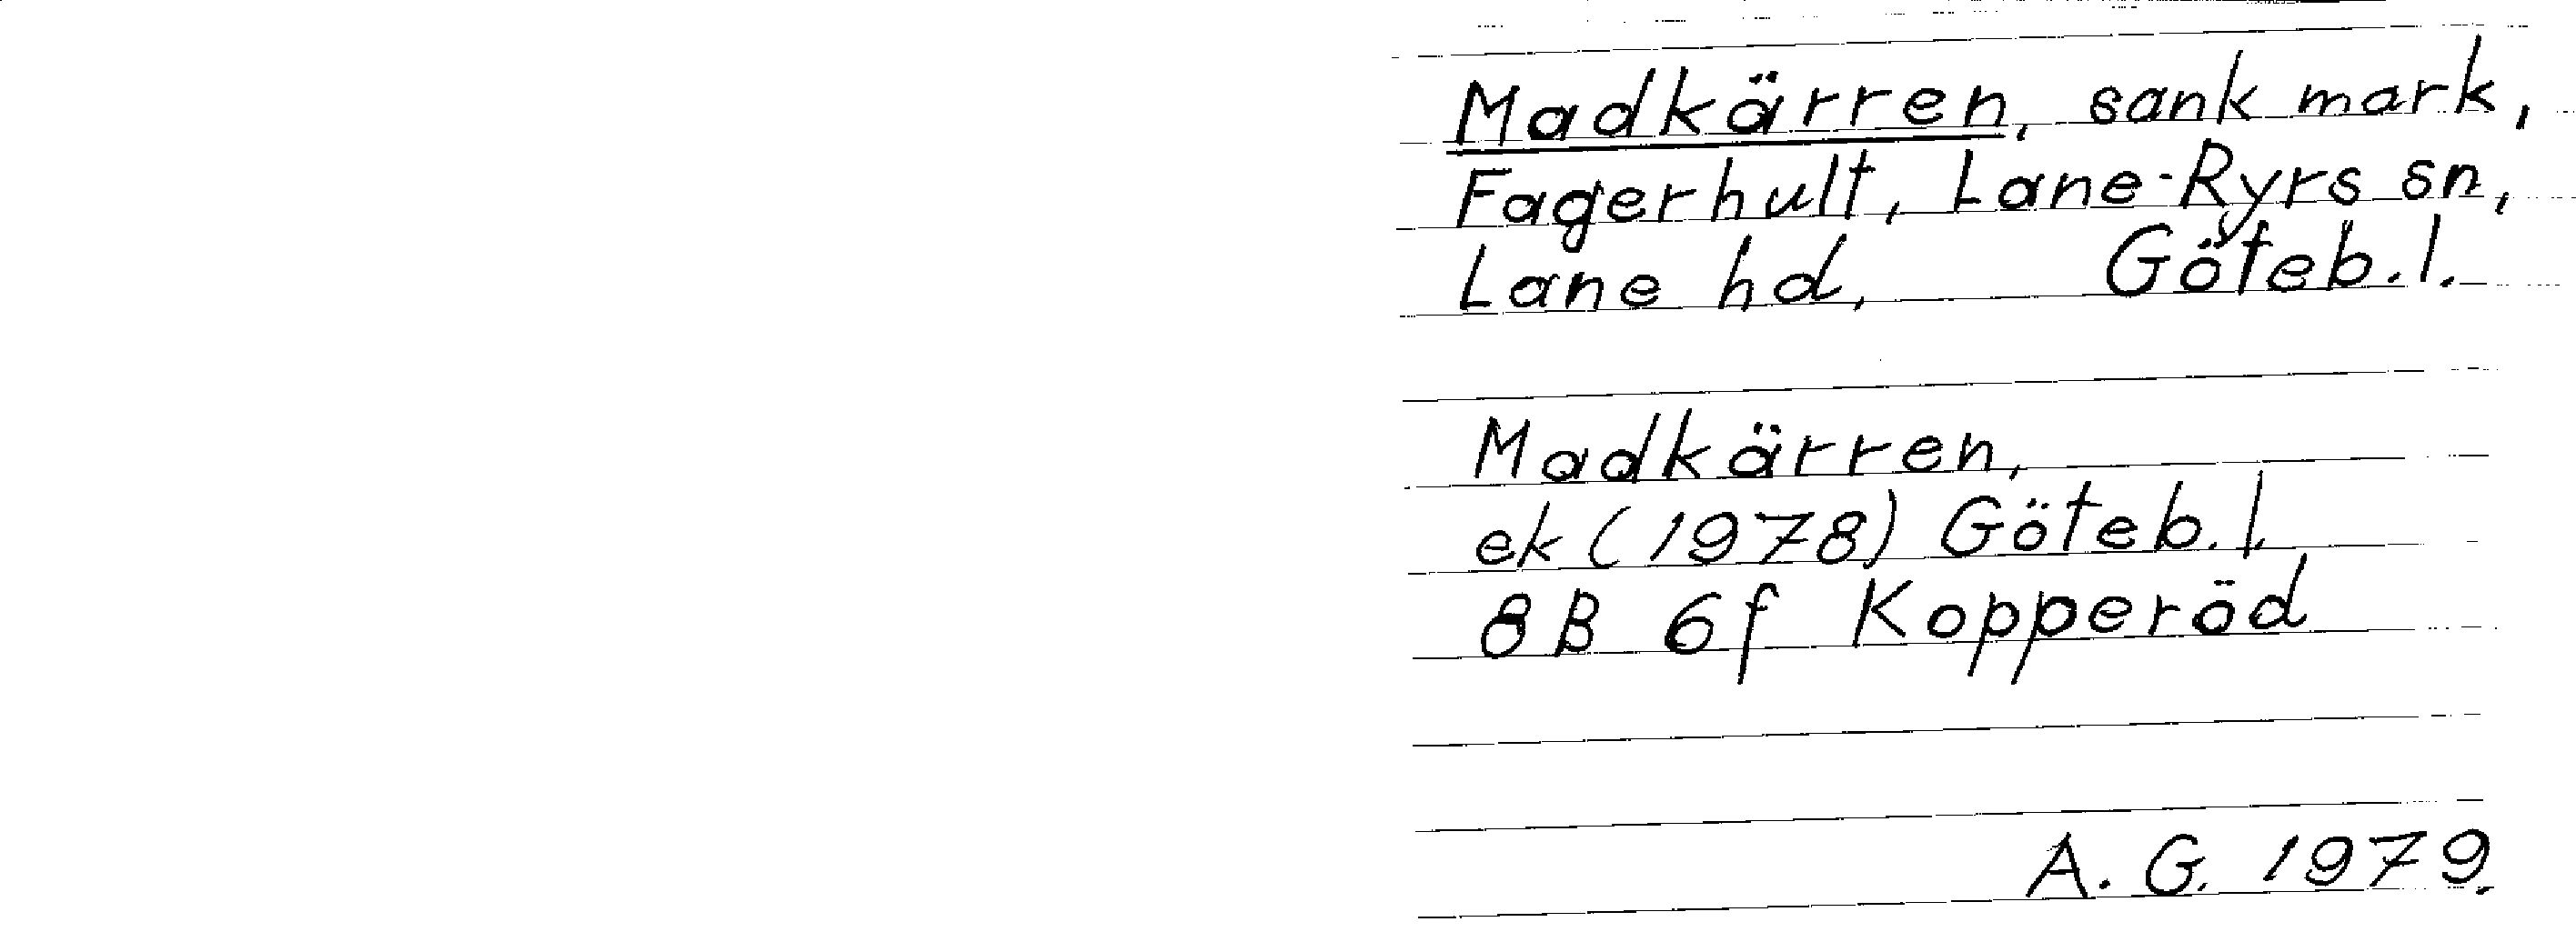 Madkärren, sank mark,
Fagerhult, Lane-Ryrs sn,
Lane hd, Göteb. l.
Madkärren,
ek (1978) Göteb. l.
8B 6f Kopperöd
A. G. 1979.